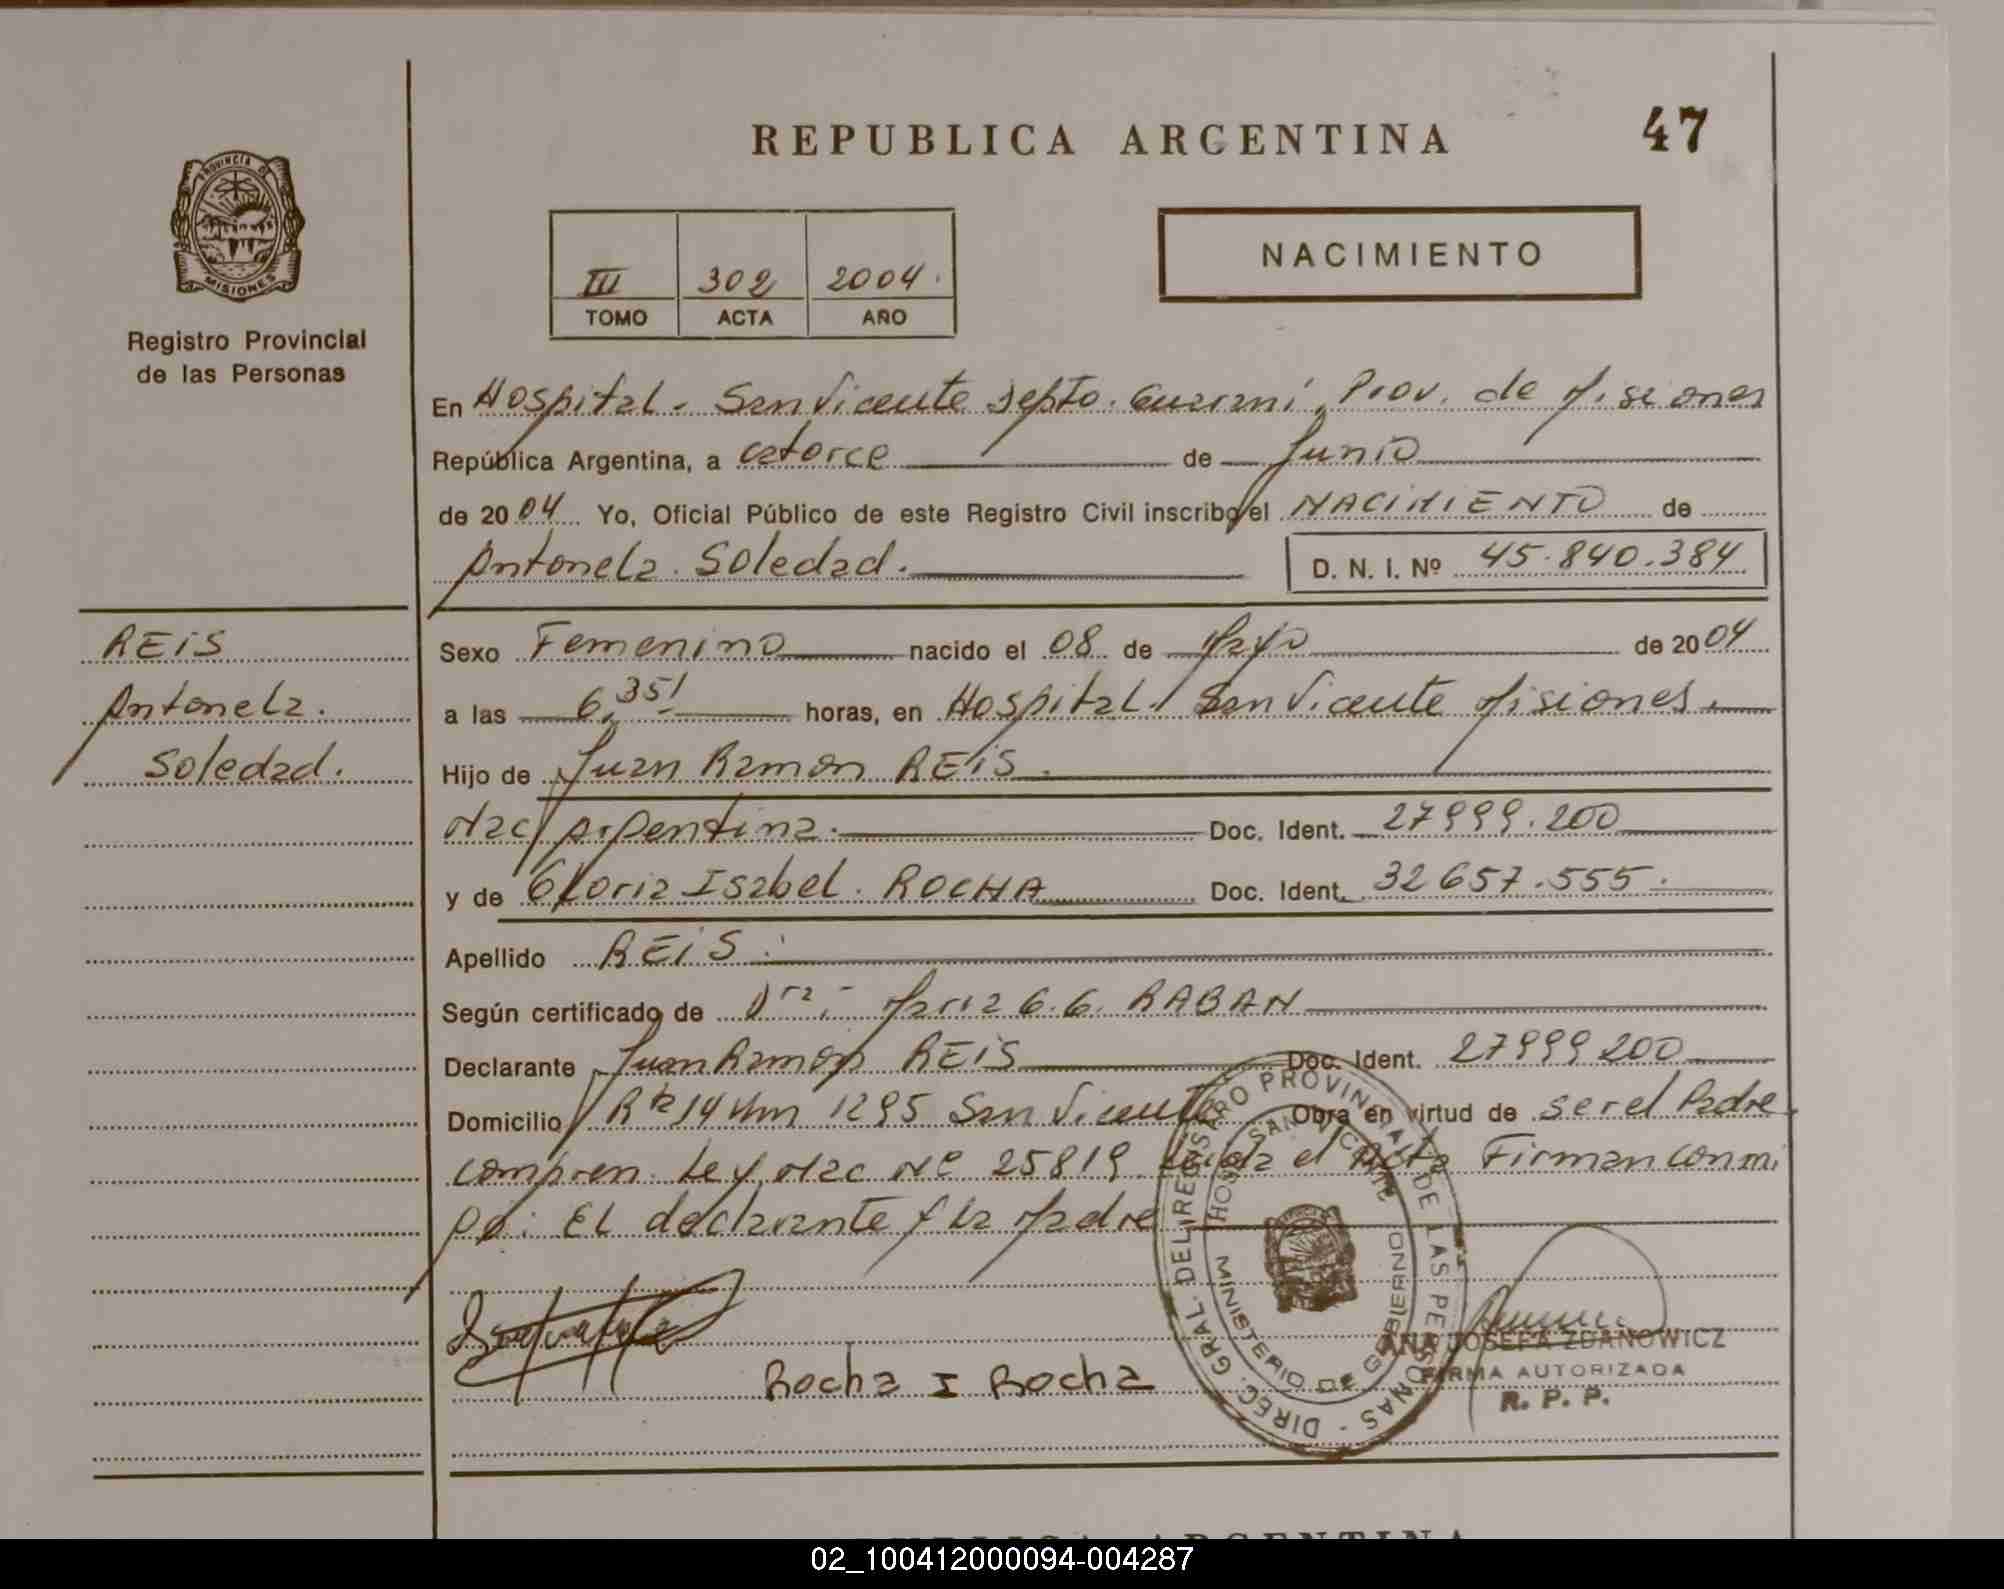 REPUBLICA ARGENTINA
47
PROVINCIA DE
MISIONES
Registro Provincial
de las Personas
III 302 2004.
TOMO ACTA AÑO
NACIMIENTO
En Hospital. San Vicente Depto. Guaraní, Prov. de Misiones
República Argentina, a catorce de Junio
de 2004 Yo, Oficial Público de este Registro Civil inscribo el NACIMIENTO de
Antonela. Soledad. D. N. I. Nº 45.840.384
REIS
Antonela.
Soledad.
Sexo Femenino nacido el 08 de Mayo de 2004
a las 6,35' horas, en Hospital. San Vicente Misiones.
Hijo de Juan Ramon REIS.
Nac. Argentina. Doc. Ident. 27999.200
y de Gloria Isabel. ROCHA Doc. Ident. 32657.555.
Apellido REIS.
Según certificado de Dra. Maria G.G. RABAN
Declarante Juan Ramon REIS Doc. Ident. 27999200
Domicilio Rta 14 Km 1295 San Vicente Obra en virtud de ser el Padre.
compren. Ley Nac Nº 25819. Leida el Acta Firman conmi
go: EL declarante y la Madre
Rocha I Rocha
DIREC. GRAL. DEL REGISTRO PROVINCIAL DE LAS PERSONAS -
SAN VICENTE
MINISTERIO DE GOBIERNO
ANA JOSEFA ZDANOWICZ
FIRMA AUTORIZADA
R. P. P.
02_100412000094-004287